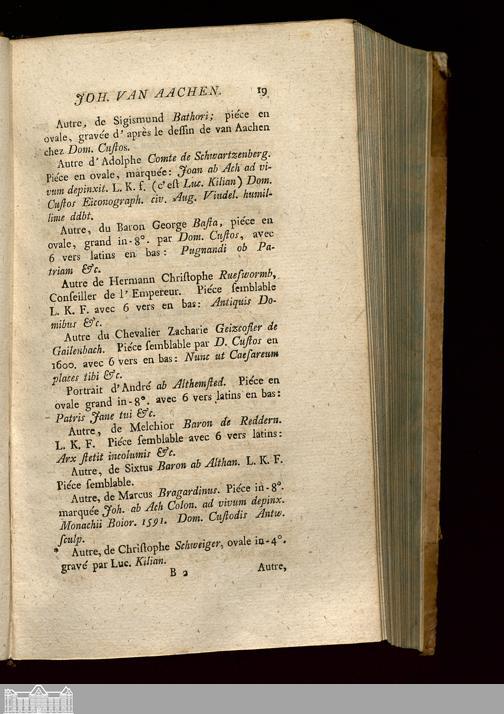 JOH. VAN AACHEN. 19
Autre, de Sigismund Bathori; piéce en
ovale, gravée d'après le deſſin de van Aachen
chez Dom. Cuſtos.
Autre d'Adolphe Comte de Schwartzenberg.
Piéce en ovale, marquée: Joan ab Ach ad vi-
vum depinxit. L. K. f. (c'eſt Luc. Kilian) Dom.
Cuſtos Eiconograph. civ. Aug. Vindel. humil-
lime ddbt.
Autre, du Baron George Baſta, piéce en
ovale, grand in-8°. par Dom. Cuſtos, avec
6 vers latins en bas: Pugnandi ob Pa-
triam &c.
Autre de Hermann Chriſtophe Rueſwormb,
Conſeiller de l'Empereur. Piéce ſemblable
L. K. F. avec 6 vers en bas: Antiquis Do-
mibus &c.
Autre du Chevalier Zacharie Geizcofler de
Gailenbach. Piéce ſemblable par D. Cuſtos en
1600. avec 6 vers en bas: Nunc ut Caeſareum
places tibi &c.
Portrait d'André ab Althemſted. Piéce en
ovale grand in-8°. avec 6 vers latins en bas:
Patris Jane tui &c.
Autre, de Melchior Baron de Reddern.
L. K. F. Piéce ſemblable avec 6 vers latins:
Arx ſtetit incolumis &c.
Autre, de Sixtus Baron ab Althan. L. K. F.
Piéce ſemblable.
Autre, de Marcus Bragardinus. Piéce in-8°.
marquée Joh. ab Ach Colon. ad vivum depinx.
Monachii Boior. 1591. Dom. Cuſtodis Antw.
ſculp.
* Autre, de Chriſtophe Schweiger, ovale in-4°.
gravé par Luc. Kilian.
B 2 Autre,